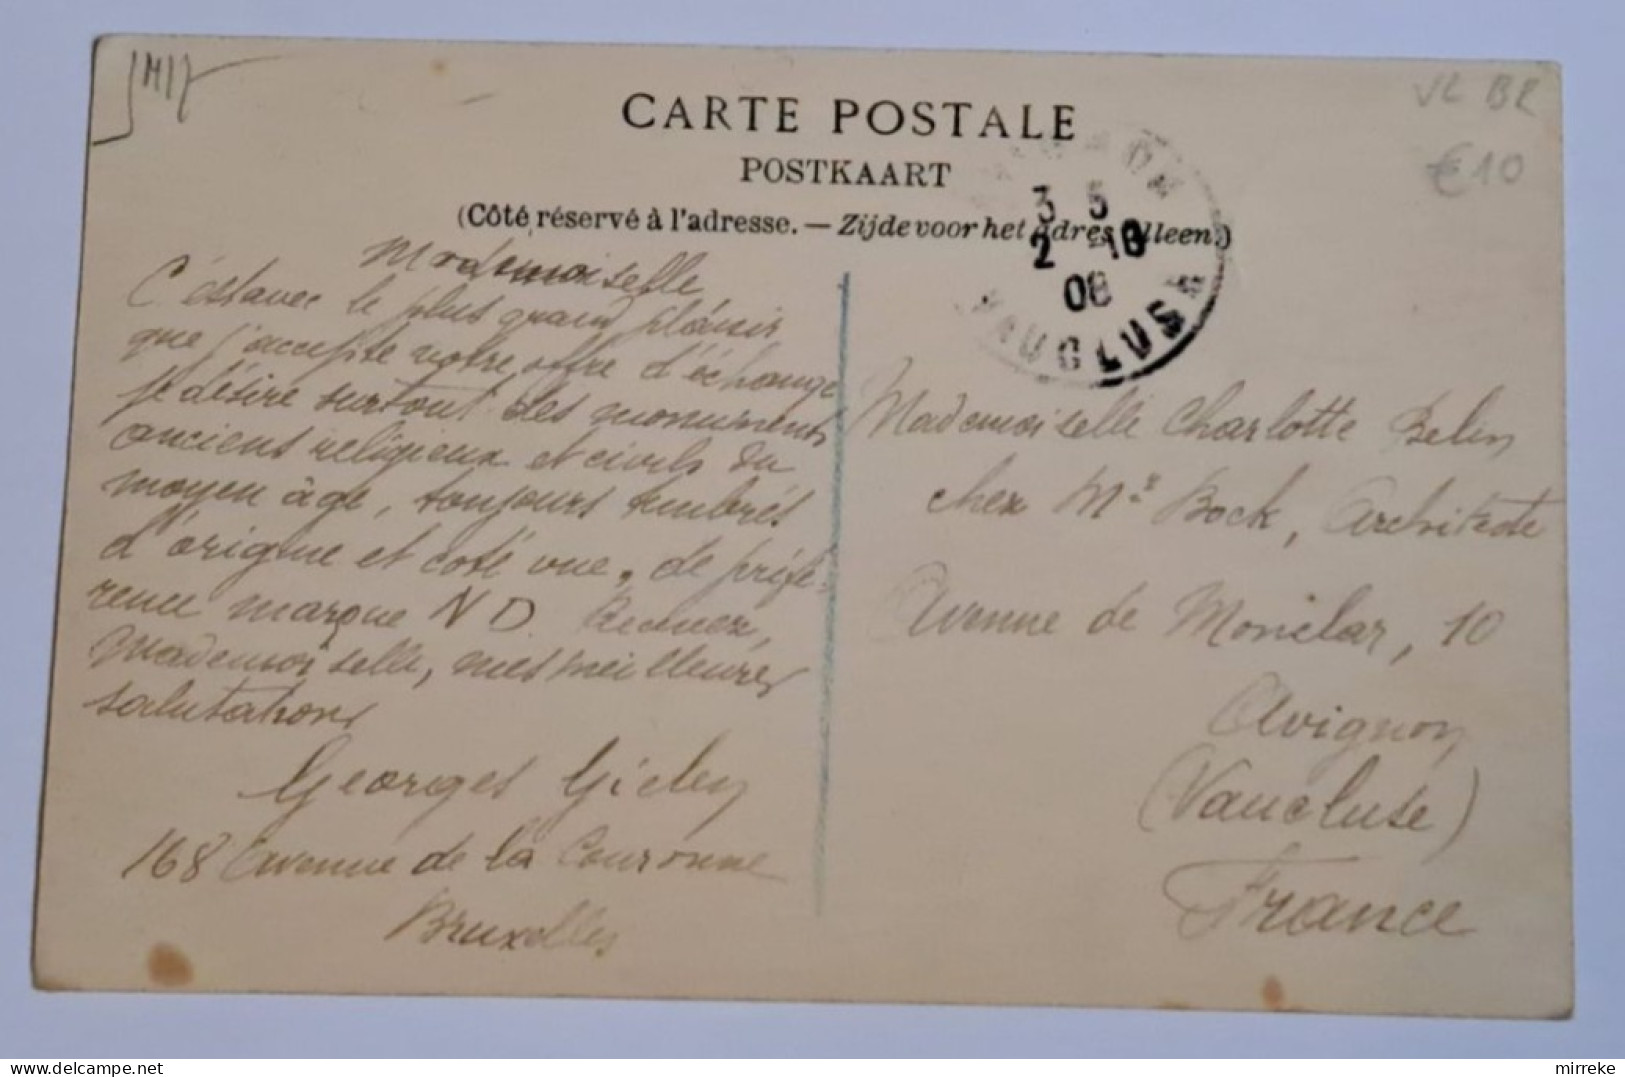 CARTE POSTALE
POSTKAART
(Côté réservé à l'adresse. — Zijde voor het adres alleen.)
VL BR
€10
3 5
2 -10
08
VAUCLUSE
Mademoiselle
C'est avec le plus grand plaisir
que j'accepte votre offre d'échange
je désire surtout des monuments
anciens religieux et civils du
moyen âge, toujours timbrés
d'origine et coté vue, de préfé-
rence marque ND. Recevez,
Mademoiselle, mes meilleures
salutations
Georges
168 Avenue de la Couronne
Bruxelles
Mademoiselle Charlotte Belin
chez Mr Bock, Architecte
Avenue de Monclar, 10
Avignon
(Vaucluse)
France
mirreke